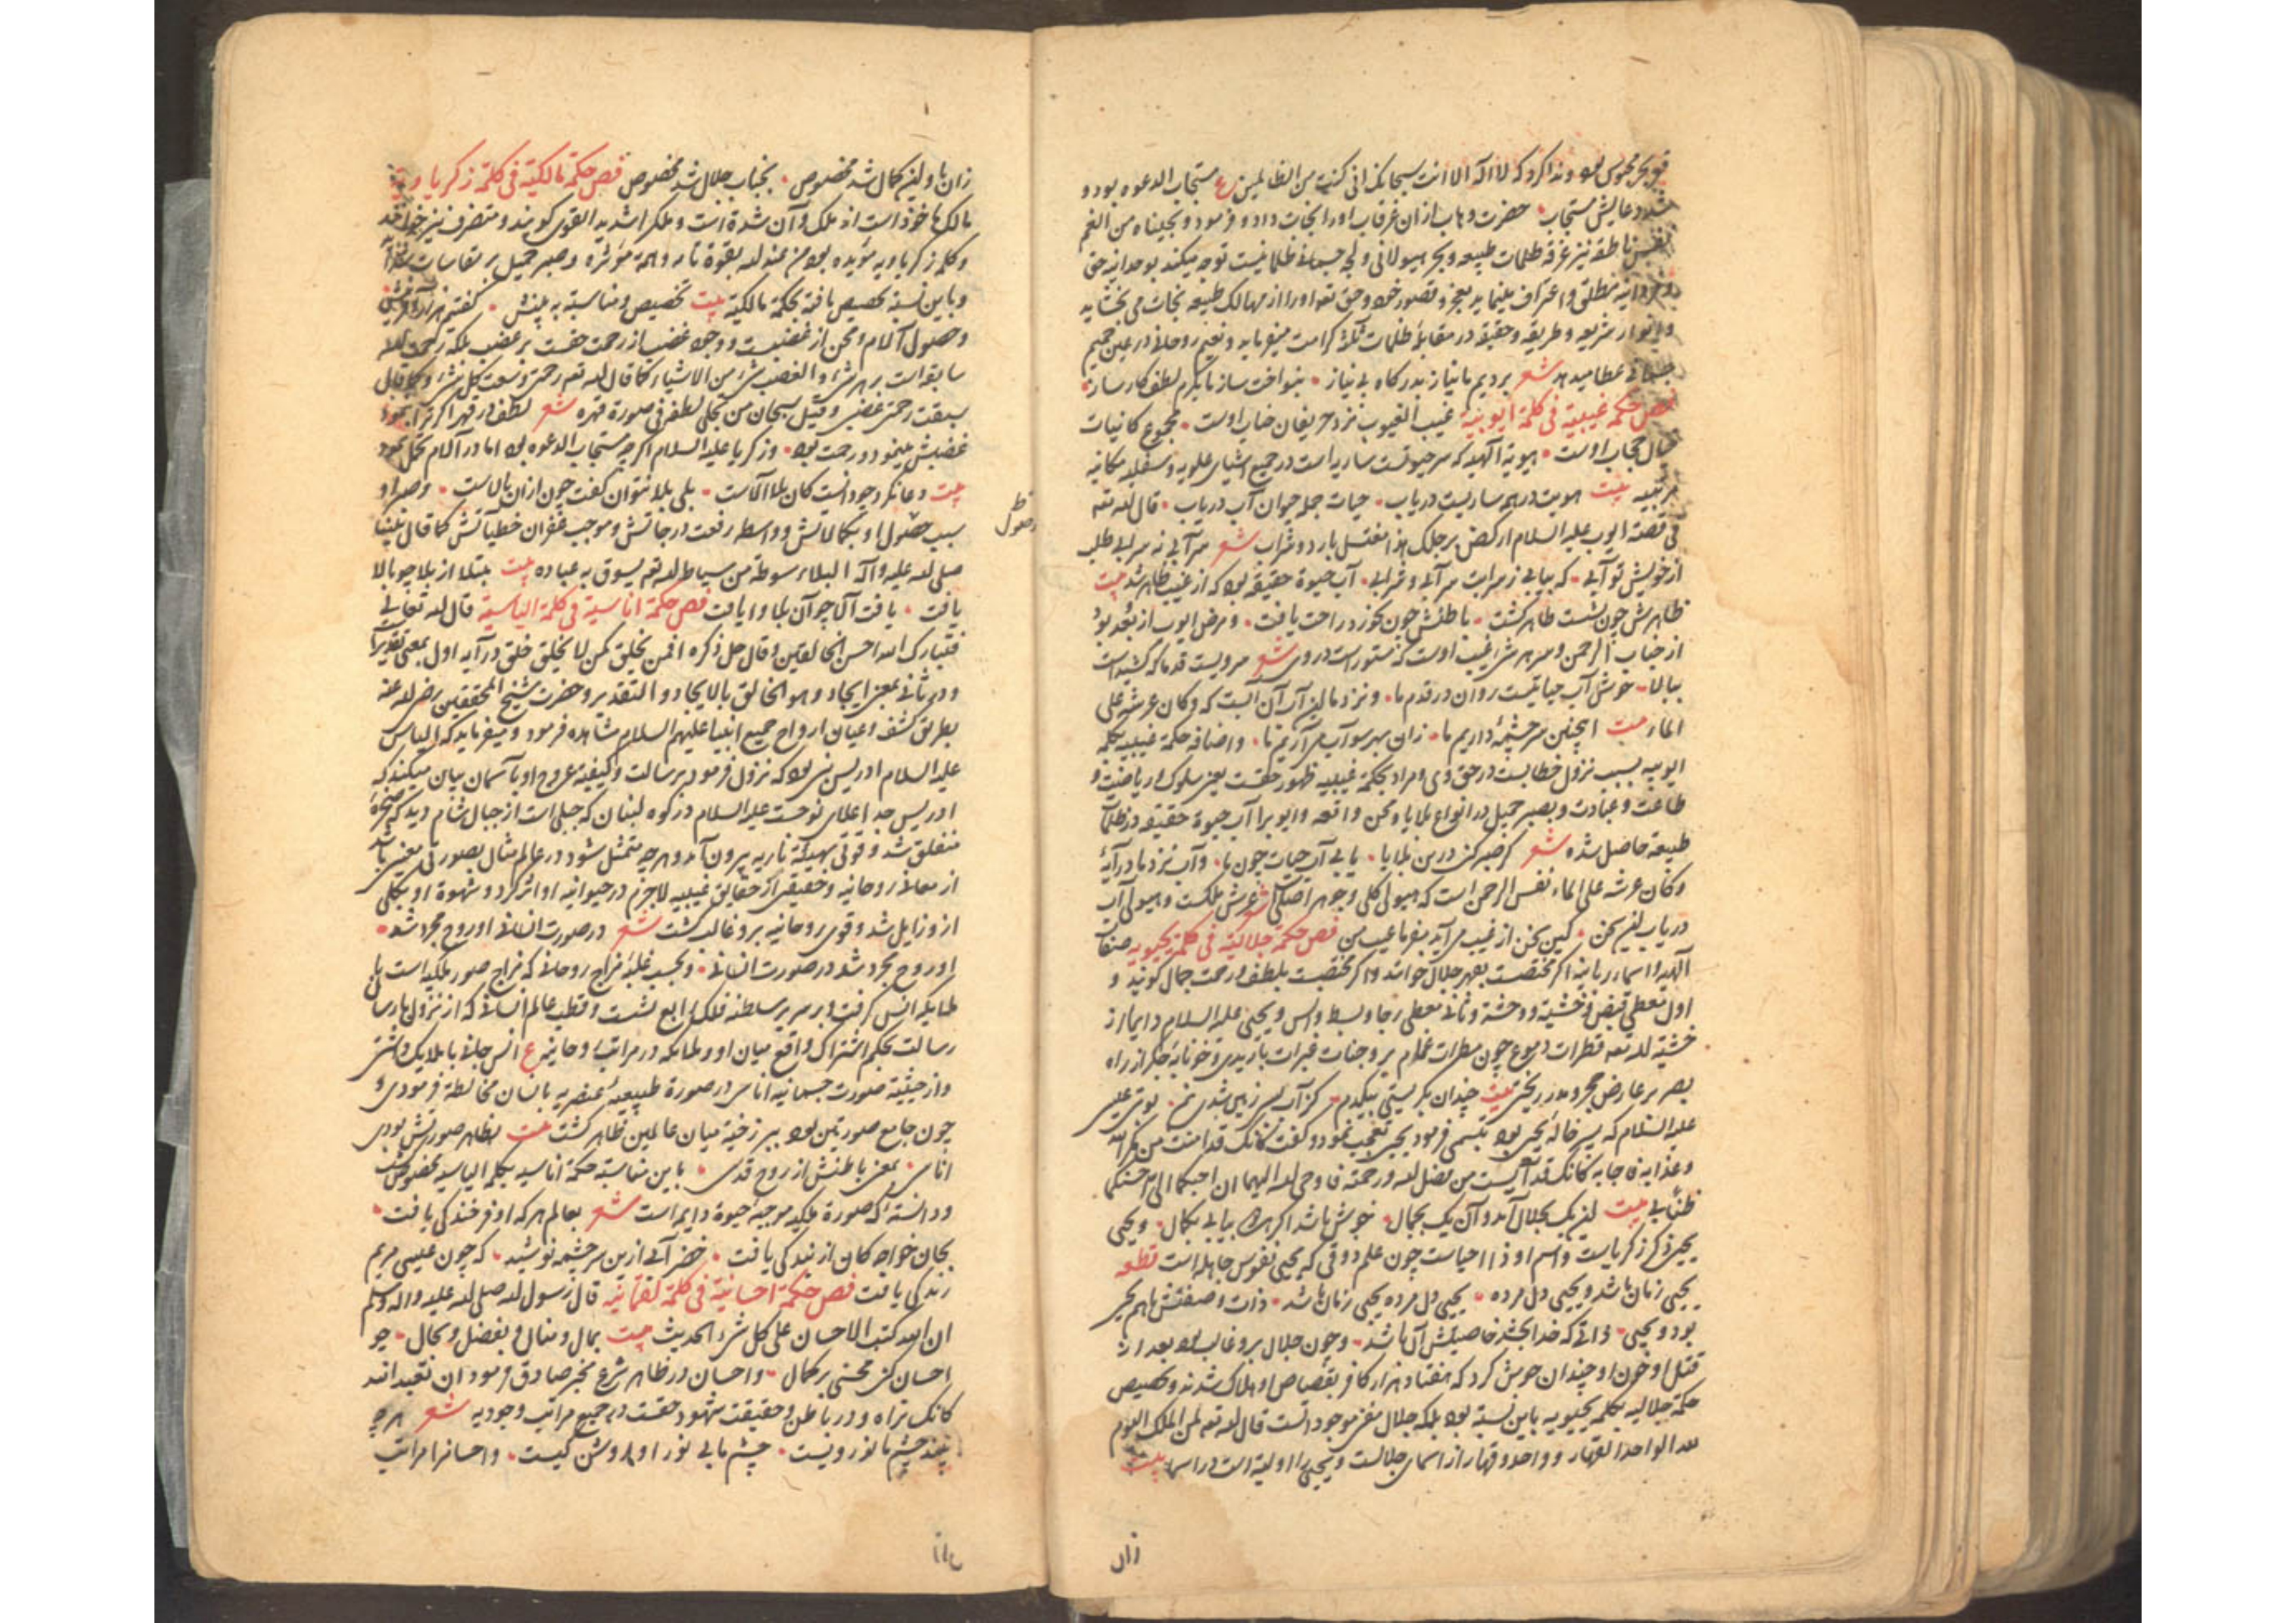 قعر بحر محبوس بود و ندا کرد که لا اله الا انت سبحانک انی کنت من الظالمین ع مستجاب الدعوه بود و
شد دعایش مستجاب حضرت وهاب از آن غرقاب او را نجات داد و فرمود و نجیناه من الغم
نفس ناطقه نیز غرقه ظلمات طبیعه و بحر هیولانی و لجه جسمانی ظلمانیست توجه میکند بوحدانیه حق
و فردانیه مطلق و اعتراف مینماید بعجز و قصور خود و حق تعه او را از مهالک طبیعه نجات می بخشاید
و انوار شریعه و طریقه و حقیقه در مقابله ظلمات ثلثه کرامت میفرماید و نعیم روحانی در عین جحیم
جسمانی عطا میدهد شعر بردیم ما نیاز بدرگاه بی نیاز بنواخت ساز ما بکرم لطف کارساز
فص حکمة غیبیة فی کلمة ایوبیة غیب الغیوب نزد حریفان جناب اوست مجموع کاینات
خیال حجاب اوست هویة آلهیه که سر حیوتست ساریه است در جمیع اشیای علویه و سفلیه مکانیه
مرتبیه بیت هویت در همه ساریست دریاب حیات جمله حیوان آب دریاب قال الله تعه
فی قصة ایوب علیه السلام ارکض برجلک هذا مغتسل بارد و شراب شعر سر آبی نه سرابی طلب
از خویش تو آبی که بیابی ز سرابت سر آبی و شرابی آب حیوة حقیقة بود که از غیب ظاهر شد بیت
ظاهرش چون بشست طاهر گشت باطنش چون بخورد راحت یافت و مرض ایوب از بعد بود
از جناب الرحمن و سر هر شیء غیب اوست که مستور است در وی شعر سرویست قد ما که کشیده است
ببالا خوش آب حیاتیست روان در قدم ما و نزد ما این آب آن آبست که و کان عرشه علی
الماء بیت اینچنین سرچشمه داریم ما زان بهر سو آب می آریم ما و اضافه حکمة غیبیه بکلمه
ایوبیه بسبب نزول خطابست در حق وی و مراد بحکمة غیبیه ظهور حقست یعنی سلوک و ریاضت و
طاعت و عبادت و بصبر جمیل در انواع بلایا و محن واقعه و ایوب را آب حیوة حقیقه در ظلمات
طبیعه حاصل شده شعر گر صبر کنی درین بلایا یابی آب حیات چون ما و آب نزد ما در آیه
و کان عرشه علی الماء نفس الرحمن است که هیولی کلی و جوهر اصلی شعر عرش ملکست و هیولی آب
دریاب این سخن کین سخن از غیب می آید بفرما عیب من فص حکمة جلالیة فی کلمة یحیویه صفات
آلهیه و اسماء ربانیه اگر مختصست بقهر جلال خوانند و اگر مختصست بلطف و رحمت جمال گویند و
اول معطی قبض و خشیة و وحشة و ثانی معطی رجا و بسط و انس و یحیی علیه السلام دایما از
خشیة الله تعه قطرات دموع چون مطرات غمام بر وجنات عبرات باریدی و خونابه جگر از راه
بصر بر عارض مجروحش ریختی بیت چندان بگریستی بیکدم کز آب سر زمین شدی نم نوبتی عیسی
علیه السلام که پسر خاله یحیی بود تبسمی فرمود یحیی تعجب نمود و گفت کانک قد امنت من مکر الله
و عذابه فاجابه کانک قد آیست من فضل الله و رحمته فاوحی الله الیهما ان احبکما الی احسنکما
ظنا بی بیت این یک بجلال آمد و آن یک بجمال خوش باشد اگر هر دو بیابی بکمال و یحیی
یحیی ذکر زکریاست و اسم او ذا احیاست چون علم ذوقی که یحیی نفوس جاهله است قطعه
یحیی زمان باشد و یحیی دل مرده یحیی دل مرده یحیی زمان باشد ذات و صفتش باهم یحیی
بود و یحیی ذاتی که خدا بخشد خاصیتش آن باشد و چون جلال برو غالب بود بعد از
قتل او خون او چندان جوش کرد که هفتاد هزار کافر بقصاص او هلاک شدند و تخصیص
حکمة جلالیه بکلمه یحیویه باین نسبة بود بلکه جلال مفنی موجوداتست قال الله تعه لمن الملک الیوم
لله الواحد القهار و واحد و قهار از اسمای جلالست و یحیی را اولیة است در اسما بیت
زان
زان باولین کمال شد مخصوص بجناب جلال شد مخصوص فص حکمة مالکیة فی کلمة زکریاویة
مالک ماخوذ است از ملک و آن شدة است و ملک را شدید القوی گویند و متصرف نیز خوانند
و کلمه زکریاویه مؤیده بود من عند الله بقوة تامه و همة مؤثره و صبر جمیل بر مقاسات شداید
و باین نسبة تخصیص یافته بحکمة مالکیة بیت تخصیص و مناسبة به بینش گفتیم هزار آفرینش
و حصول آلام و محن از غضبست و وجود غضب از رحمت حقست بر غضب بلکه رحمت الله
سابق است بر هر شیء و الغضب شیء من الاشیاء کما قال الله تعه رحمتی وسعت کل شیء و کما قال
سبقت رحمتی غضبی و قیل سبحان من تجلی لطفه فی صورة قهره شعر لطف او در قهر اگر ترا بنمود
غضبش مینمود و رحمت بود و زکریا علیه السلام اگر چه مستجاب الدعوه بود اما در آلام تحمل نمود
بیت دعا نکرد چو دانست کان بلا آلاست بلی بلا نتوان گفت چون از آن بالاست و صبر او
سبب حصول او بکمالاتش و واسطه رفعت درجاتش و موجب غفران خطیآتش کما قال نبینا
صلی الله علیه و آله البلاء سوط من سیاط الله تعه یسوق به عباده بیت مبتلا از بلا چو بالا
یافت یافت آلا چو آن بلا وا یافت فص حکمة ایناسیة فی کلمة الیاسیة قال الله تعالی
فتبارک الله احسن الخالقین و قال جل ذکره افمن یخلق کمن لا یخلق خلق در آیه اول بمعنی تقدیر است
و در ثانی بمعنی ایجاد و هو الخالق بالایجاد و التقدیر و حضرت شیخ المحققین رضی الله عنه
بطریق کشف و عیان ارواح جمیع انبیا علیهم السلام مشاهده فرمود و میفرماید که الیاس
علیه السلام ادریس نبی بود که نزول فرمود برسالت و کیفیة عروج او بآسمان بیان میکند که
ادریس جد اعلای نوحست علیه السلام در کوه لبنان که جبلی است از جبال شام دید که صخره
منفلق شد و قوتی بهیکلة ناریه بیرون آمد و هر چه متمثل شود در عالم مثال بصورتی معنیی باشد
از معانی روحانیه و حقیقتی از حقایق غیبیه لاجرم در حیوانیه او اثر کرد و شهوة او بکلی
ازو زایل شد و قوی روحانیه برو غالب گشت شعر در صورت انسانی او روح مجرد شد
او روح مجرد شد در صورت انسانی و بحسب غلبه مزاج روحانی که مزاج صور ملکیه است با
ملایکه انس گرفت و بر سریر سلطنه فلک رابع نشست و قطب عالم انسانی که از نزول بارسا
رسالت بحکم اشتراک واقع میان او و ملایکه در مراتب روحانیه ع انس جانی با ملایک داشتی
و از حیثیة صورت جسمانیه اناسی در صورة طبیعیه عنصریه با انسان مخالطة فرمودی و
چون جامع صورتین بود ببرزخیة میان عالمین ظاهر گشت بیت بظاهر صورتش بودی
اناسی بمعنی باطنش از روح قدسی باین مناسبة حکمة ایناسیه بکلمه الیاسیه مخصوص گشت
و دانسته که صورة ملکیه موجبه حیوة دایم است شعر بعالم هر که او فرخندگی یافت
بجان خواجه کان از بندگی یافت خضر آبی ازین سرچشمه نوشید که چون عیسی مریم
زندگی یافت فص حکمة احسانیة فی کلمة لقمانیة قال رسول الله صلی الله علیه و اله و سلم
ان الله کتب الاحسان علی کل شیء الحدیث بیت بمال و منال و بفضل و کمال چو
احسان کنی محسنی بر کمال و احسان در ظاهر شرع مخبر صادق فرمود ان تعبد الله
کانک تراه و در باطن و حقیقت شهود حقست در جمیع مراتب وجودیه شعر هر چه
بیند چشم ما نور ویست چشم ما بی نور او روشن کیست و احسان را مراتب
حصول